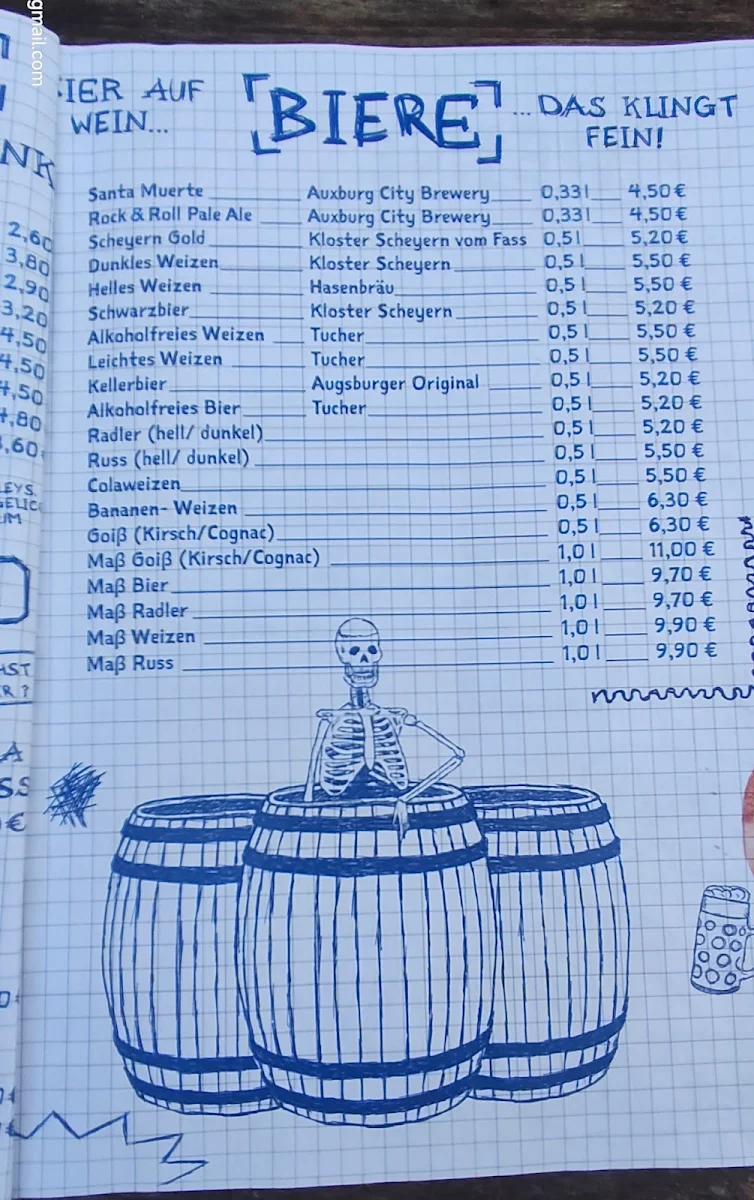 gmail.com
NK
2,60
3,80
2,90
3,20
4,50
4,50
4,50
4,80
IER AUF WEIN...
[BIERE]
...DAS KLINGT FEIN!
Santa Muerte Auxburg City Brewery 0,33 l 4,50 €
Rock & Roll Pale Ale Auxburg City Brewery 0,33 l 4,50 €
Scheyern Gold Kloster Scheyern vom Fass 0,5 l 5,20 €
Dunkles Weizen Kloster Scheyern 0,5 l 5,50 €
Helles Weizen Hasenbräu 0,5 l 5,50 €
Schwarzbier Kloster Scheyern 0,5 l 5,20 €
Alkoholfreies Weizen Tucher 0,5 l 5,50 €
Leichtes Weizen Tucher 0,5 l 5,50 €
Kellerbier Augsburger Original 0,5 l 5,20 €
Alkoholfreies Bier Tucher 0,5 l 5,20 €
Radler (hell/ dunkel) 0,5 l 5,20 €
Russ (hell/ dunkel) 0,5 l 5,50 €
Colaweizen 0,5 l 5,50 €
Bananen- Weizen 0,5 l 6,30 €
Goiß (Kirsch/Cognac) 0,5 l 6,30 €
Maß Goiß (Kirsch/Cognac) 1,0 l 11,00 €
Maß Bier 1,0 l 9,70 €
Maß Radler 1,0 l 9,70 €
Maß Weizen 1,0 l 9,90 €
Maß Russ 1,0 l 9,90 €